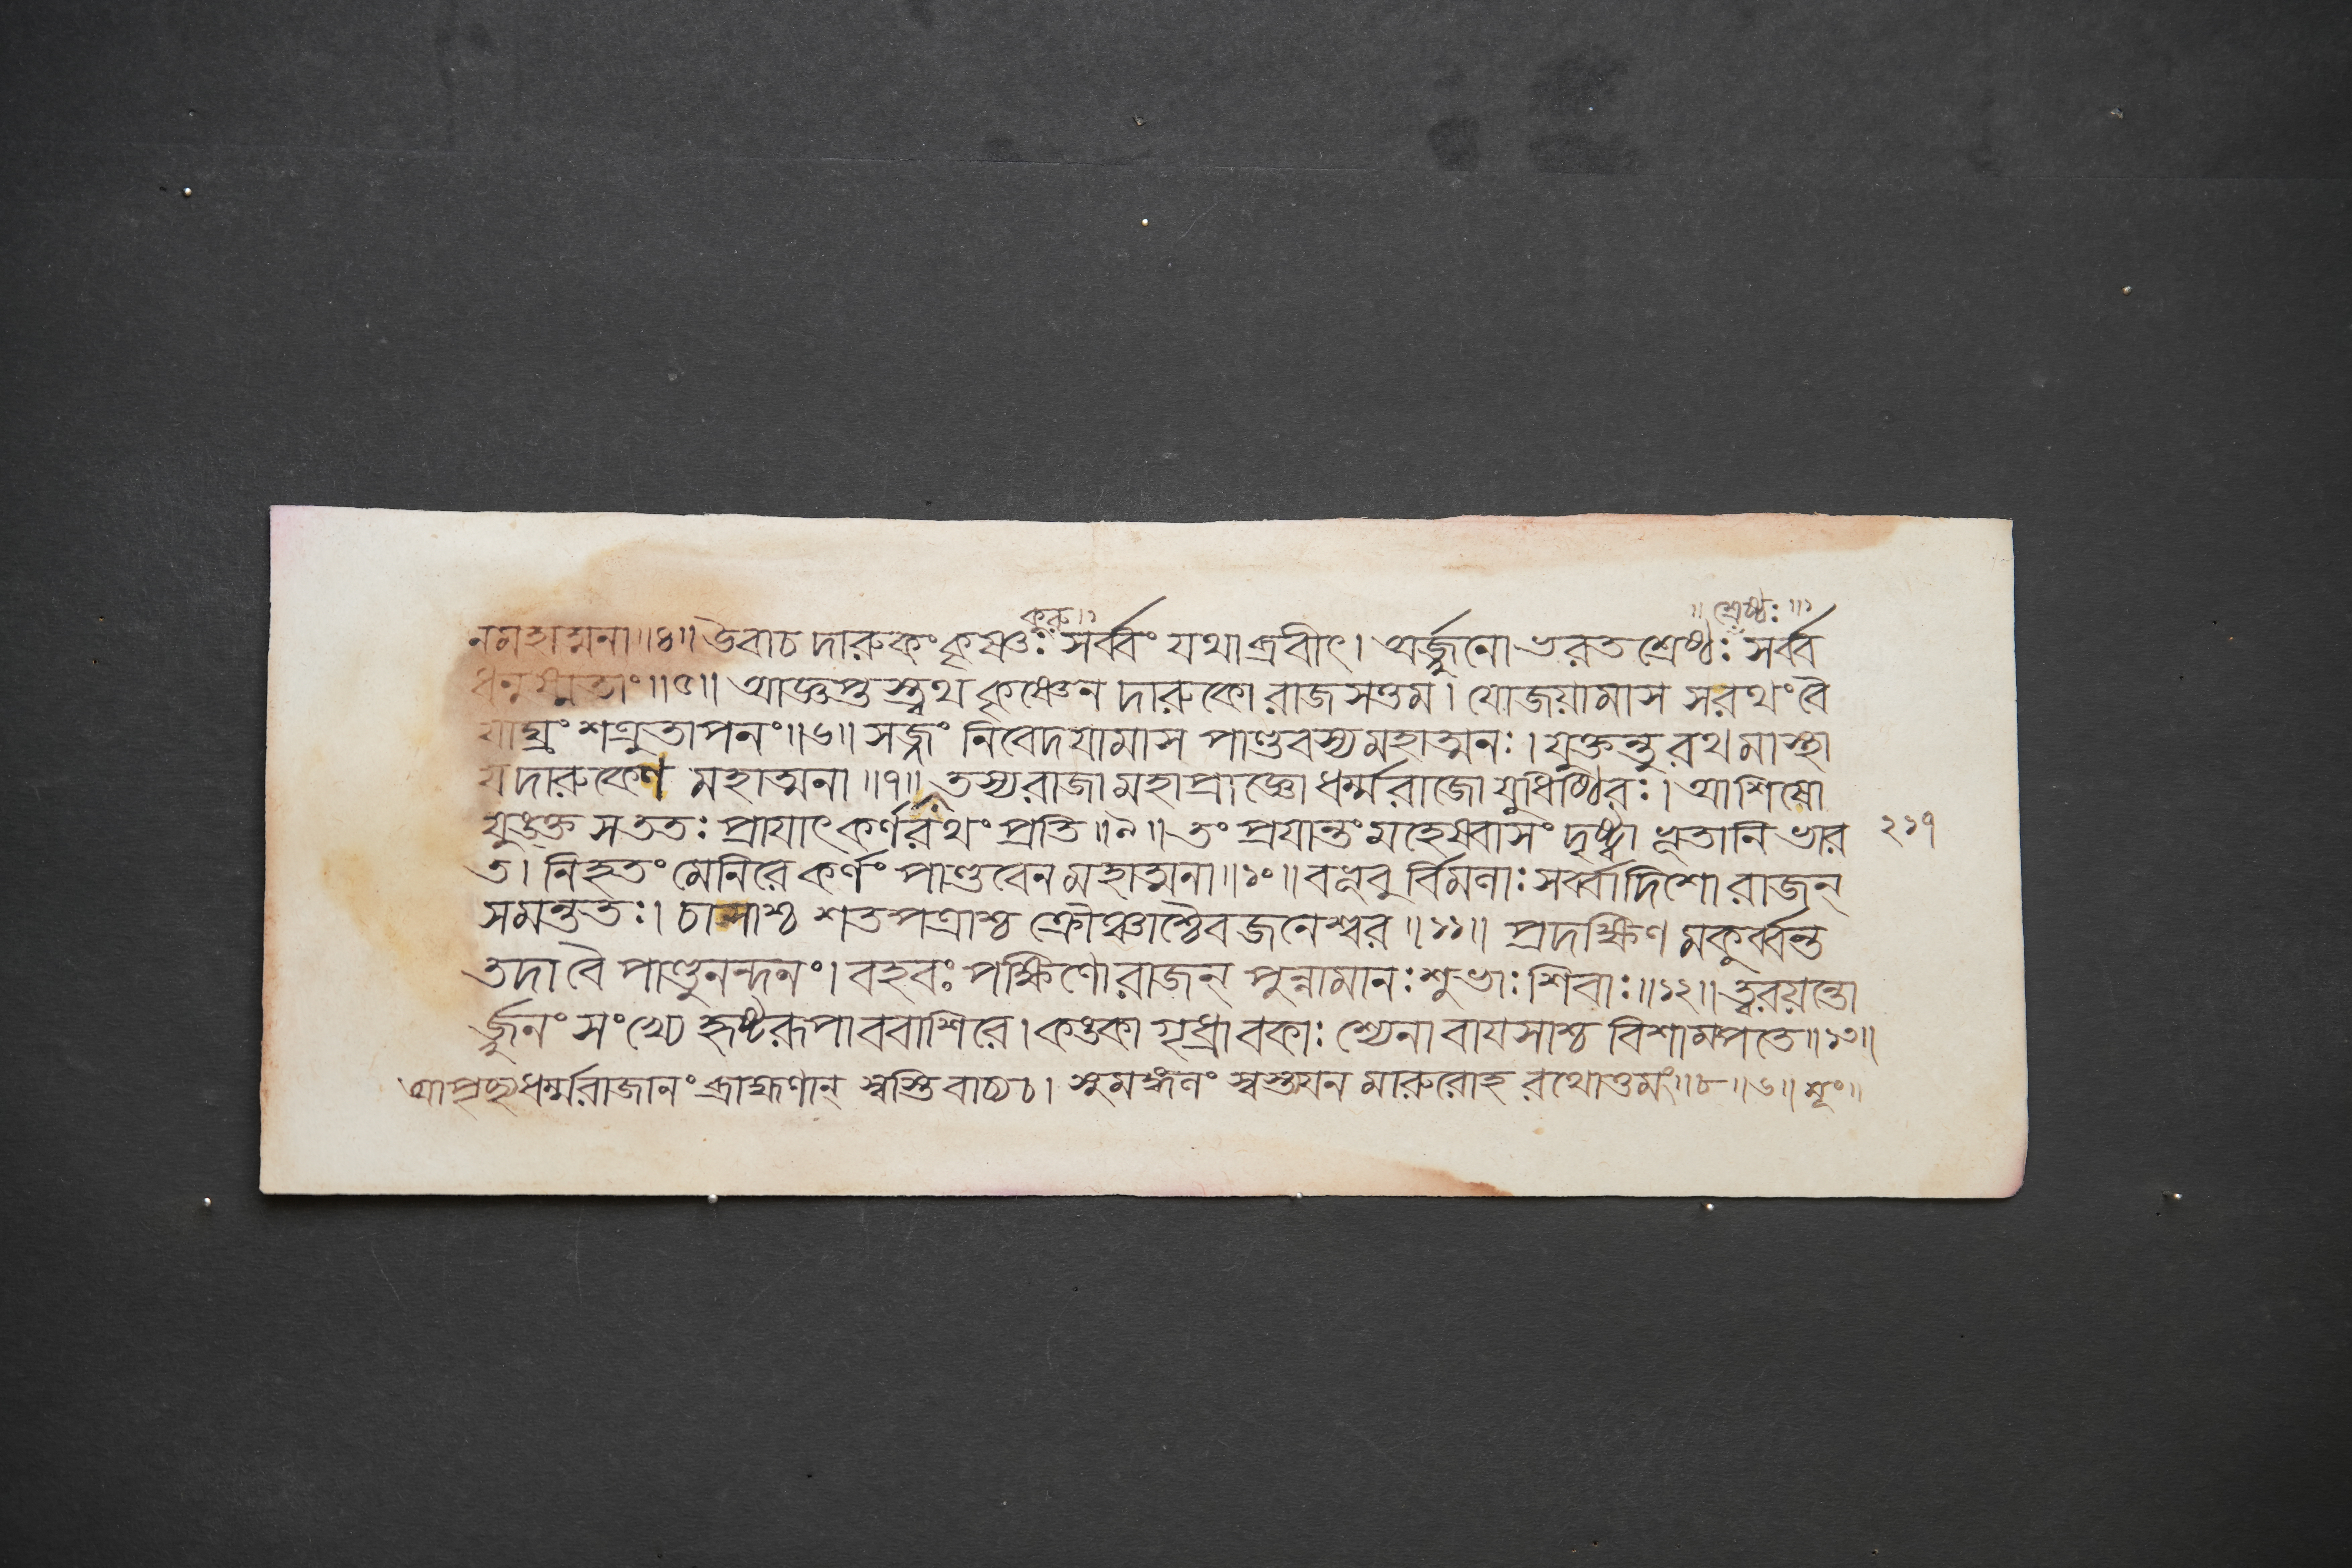 কুরু॥১ ॥শ্রেষ্ঠঃ॥১
নমহাত্মনা॥৪॥উবাচ দারুকং কৃষ্ণঃ সর্ব্বং যথাব্রবীৎ। অর্জ্জুনো ভরতশ্রেষ্ঠঃ সর্ব্ব
ধনুষ্মতাং॥৫॥ আজ্ঞপ্তস্ত্বথ কৃষ্ণেন দারুকো রাজসত্তম। যোজয়ামাস সরথং বৈ
যাঘ্রং শত্রুতাপনং॥৬॥ সজ্জং নিবেদযামাস পাণ্ডবস্য মহাত্মনঃ। যুক্তন্তু রথমাস্থা
য দারুকেণ মহাত্মনা॥৭॥ তস্য রাজা মহাপ্রাজ্ঞো ধর্ম্মরাজো যুধিষ্ঠিরঃ। আশিষো
যুঙ্‌ক্ত সততঃ প্রাযাৎ কর্ণরথং প্রতি॥৯॥ তং প্রযান্তং মহেষ্বাসং দৃষ্ট্বা ভূতানি ভার ২১৭
ত। নিহতং মেনিরে কর্ণং পাণ্ডবেন মহাত্মনা॥১০॥ বভূবুর্বিমলাঃ সর্ব্বাদিশো রাজন্
সমন্ততঃ। চাসাশ্চ শতপত্রাশ্চ ক্রৌঞ্চাশ্চৈব জনেশ্বর॥১১॥ প্রদক্ষিণ মকুর্ব্বন্ত
তদা বৈ পাণ্ডুনন্দনং। বহবঃ পক্ষিণো রাজন্ পুন্নামানঃ শুভাঃ শিবাঃ॥১২॥ ত্বরয়ন্তো
র্জ্জুনং সংখ্যে হৃষ্টরূপা ববাশিরে। কঙ্কা গৃধ্রা বকাঃ শ্যেনা বাযসাশ্চ বিশাম্পতে॥১৩॥
আপৃচ্ছ্য ধর্ম্মরাজানং ব্রাহ্মণান্ স্বস্তি বাচ্য চ। সুমঙ্গলং স্বস্ত্যয়ন মারুরোহ রথোত্তমং॥৮॥৬॥শ্লং॥